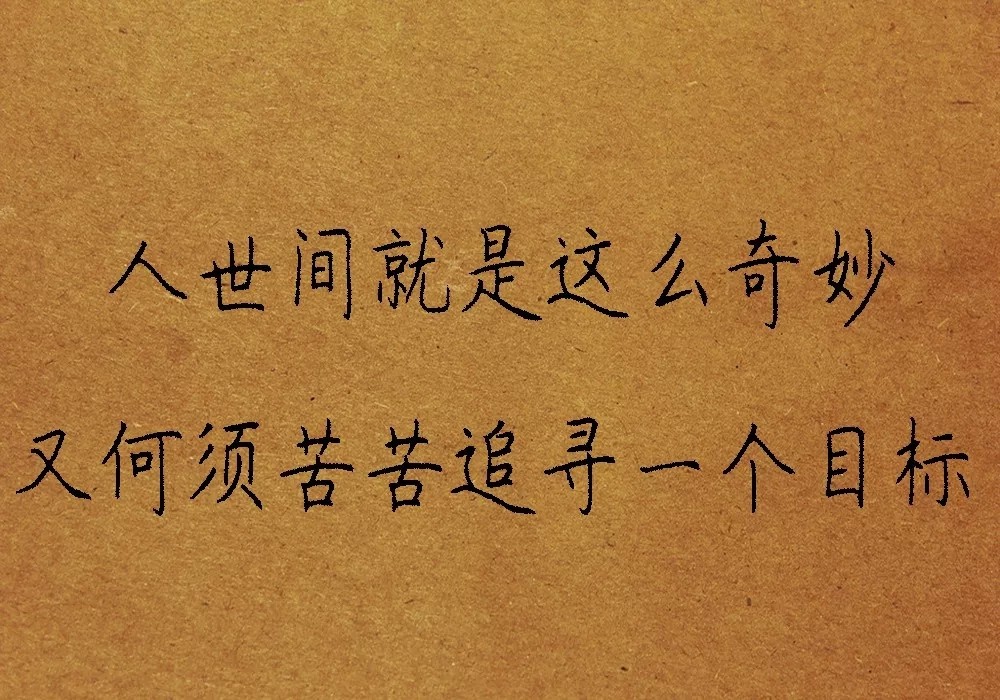 人世间就是这么奇妙
又何须苦苦追寻一个目标